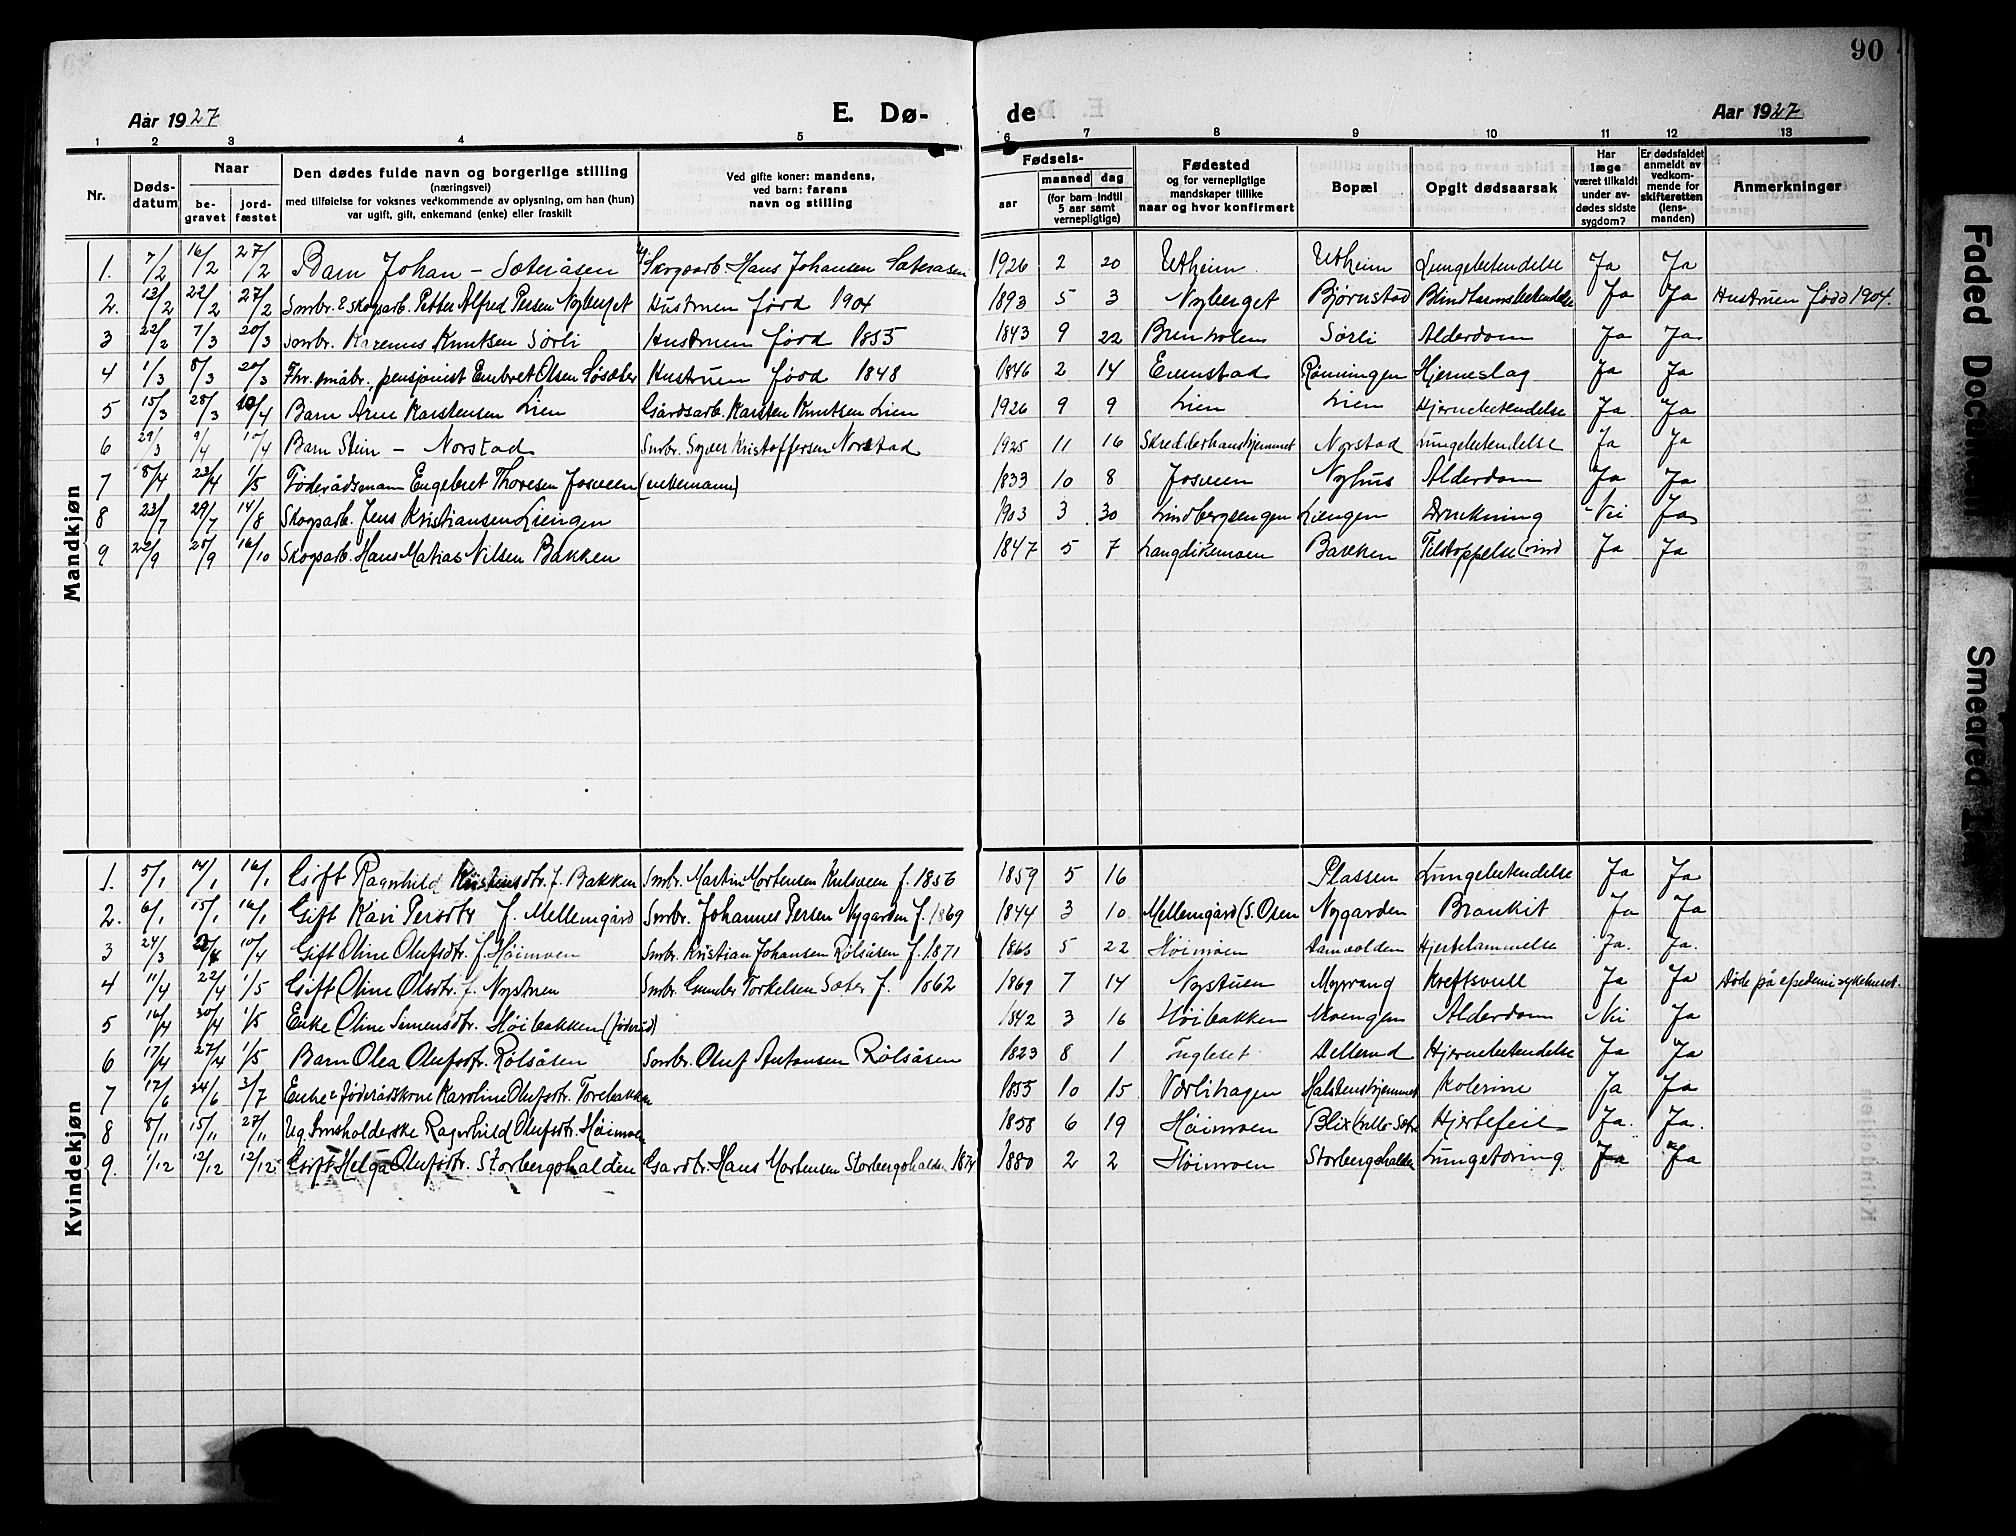 90
Aar 1927 E. Dø- de Aar 1927
1 2 3 4 5 6 7 8 9 10 11 12 13
Nr. Døds-datum Naar be-gravet jord-fæstet Den dødes fulde navn og borgerlige stilling (næringsvei) med tilføielse for voksnes vedkommende av oplysning, om han (hun) var ugift, gift, enkemand (enke) eller fraskilt Ved gifte koner: mandens, ved barn: farens navn og stilling Fødsels- aar maaned dag (for barn indtil 5 aar samt vernepligtige) Fødested og for vernepligtige mandskaper tillike naar og hvor konfirmert Bopæl Opgit dødsaarsak Har læge været tilkaldt under av-dødes sidste sygdom? Er dødsfaldet anmeldt av vedkom-mende for skifteretten (lens-manden) Anmerkninger
Mandkjøn
1. 7/2 16/2 27/2 Barn Johan - Sæteråsen Skogsarb. Hans Johansen Sæteråsen 1926 2 20 Utheim Utheim Lungebetendelse Ja Ja
2. 13/2 22/2 27/2 Smbr. & skogsarb. Petter Alfred Persen Nyberget Hustruen født 1904 1893 5 3 Nyberget Bjørnstad Blindtarmsbetendelse Ja Ja Hustruen født 1904.
3 22/2 7/3 20/3 Smbr. Karenus Knutsen Sørli Hustruen født 1855 1843 9 22 Brenholen Sørli Alderdom Ja Ja
4 1/3 8/3 20/3 Fhv. småbr., pensjonist Embret Olsen Løsæter Hustruen født 1848 1846 2 14 Evenstad Rønningen Hjerneslag Ja Ja
5 15/3 28/3 10/4 Barn Arne Karstensen Lien Gårdsarb. Karsten Knutsen Lien 1926 9 9 Lien Lien Hjernebetendelse Ja Ja
6 29/3 9/4 15/4 Barn Stein - Norstad Smbr. Syver Kristoffersen Norstad 1925 11 16 Skredderhanshjemmet Norstad Lungebetendelse Ja Ja
7 8/4 23/4 1/5 Føderådsmann Engebret Thoresen Josveen (enkemann) 1833 10 8 Josveen Nyhus Alderdom Ja Ja
8 23/7 29/7 14/8 Skogsarb. Jens Kristiansen Liengen 1903 3 30 Lindbergsengen Liengen Drukning Nei Ja
9 22/9 28/9 16/10 Skogsarb. Hans Matias Nilsen Bakken 1847 5 7 Langdikemoen Bakken Tilstoppelse (vind Ja Ja
Kvindekjøn
1. 5/1 14/1 16/1 Gift Ragnhild Kristensdtr. f. Bakken Smbr. Martin Mortensen Kulsveen f. 1856 1859 5 16 Plassen Lungebetendelse Ja Ja
2. 6/1 15/1 16/1 Gift Kari Persdtr f. Mellemgård Smbr. Johannes Persen Nygarden f. 1869 1844 3 10 Mellemgård (S. Osen Nygarden Bronkit Ja Ja
3 24/3 2/4 10/4 Gift Oline Olufsdtr. f. Høimoen Smbr. Kristian Johansen Rølsåsen f. 1871 1865 5 22 Høimoen Damvolden Hjertelammelse Ja. Ja.
4 11/4 22/4 1/5 Gift Oline Olsdtr. f. Nystuen Smbr. Gunder Torkelsen Sæter f. 1862 1869 7 14 Nystuen Myrvang Kreftsvull Ja Ja Døde på epedemisykehuset.
5 16/4 30/4 1/5 Enke Oline Simensdtr. Høibakken (føderåd) 1842 3 16 Høibakken Moengen Alderdom Nei Ja
6 17/4 27/4 1/5 Barn Olea Olufsdtr. Rølsåsen Smbr. Oluf Antonsen Rølsåsen 1823 8 1 Fugleset Dellerud Hjernebetendelse Ja Ja
7 17/6 24/6 3/7 Enke & føderådskone Karoline Olufsdtr. Torebakken 1855 10 15 Værlihagen Halstenshjemmet Kolerine Ja Ja
8 8/11 15/11 27/11 Ug. Innholderske Ragnhild Olufsdtr. Høimoen 1858 6 19 Høimoen Blix Hjertefeil Ja. Ja.
9. 1/12 12/12 12/12 Gift Helga Olufsdtr. Storbergshalden Gardbr. Hans Mortensen Storbergshalden 1874 1880 2 2 Høimoen Storbergshalden Lungetæring Ja Ja
Faded Document
Smeared